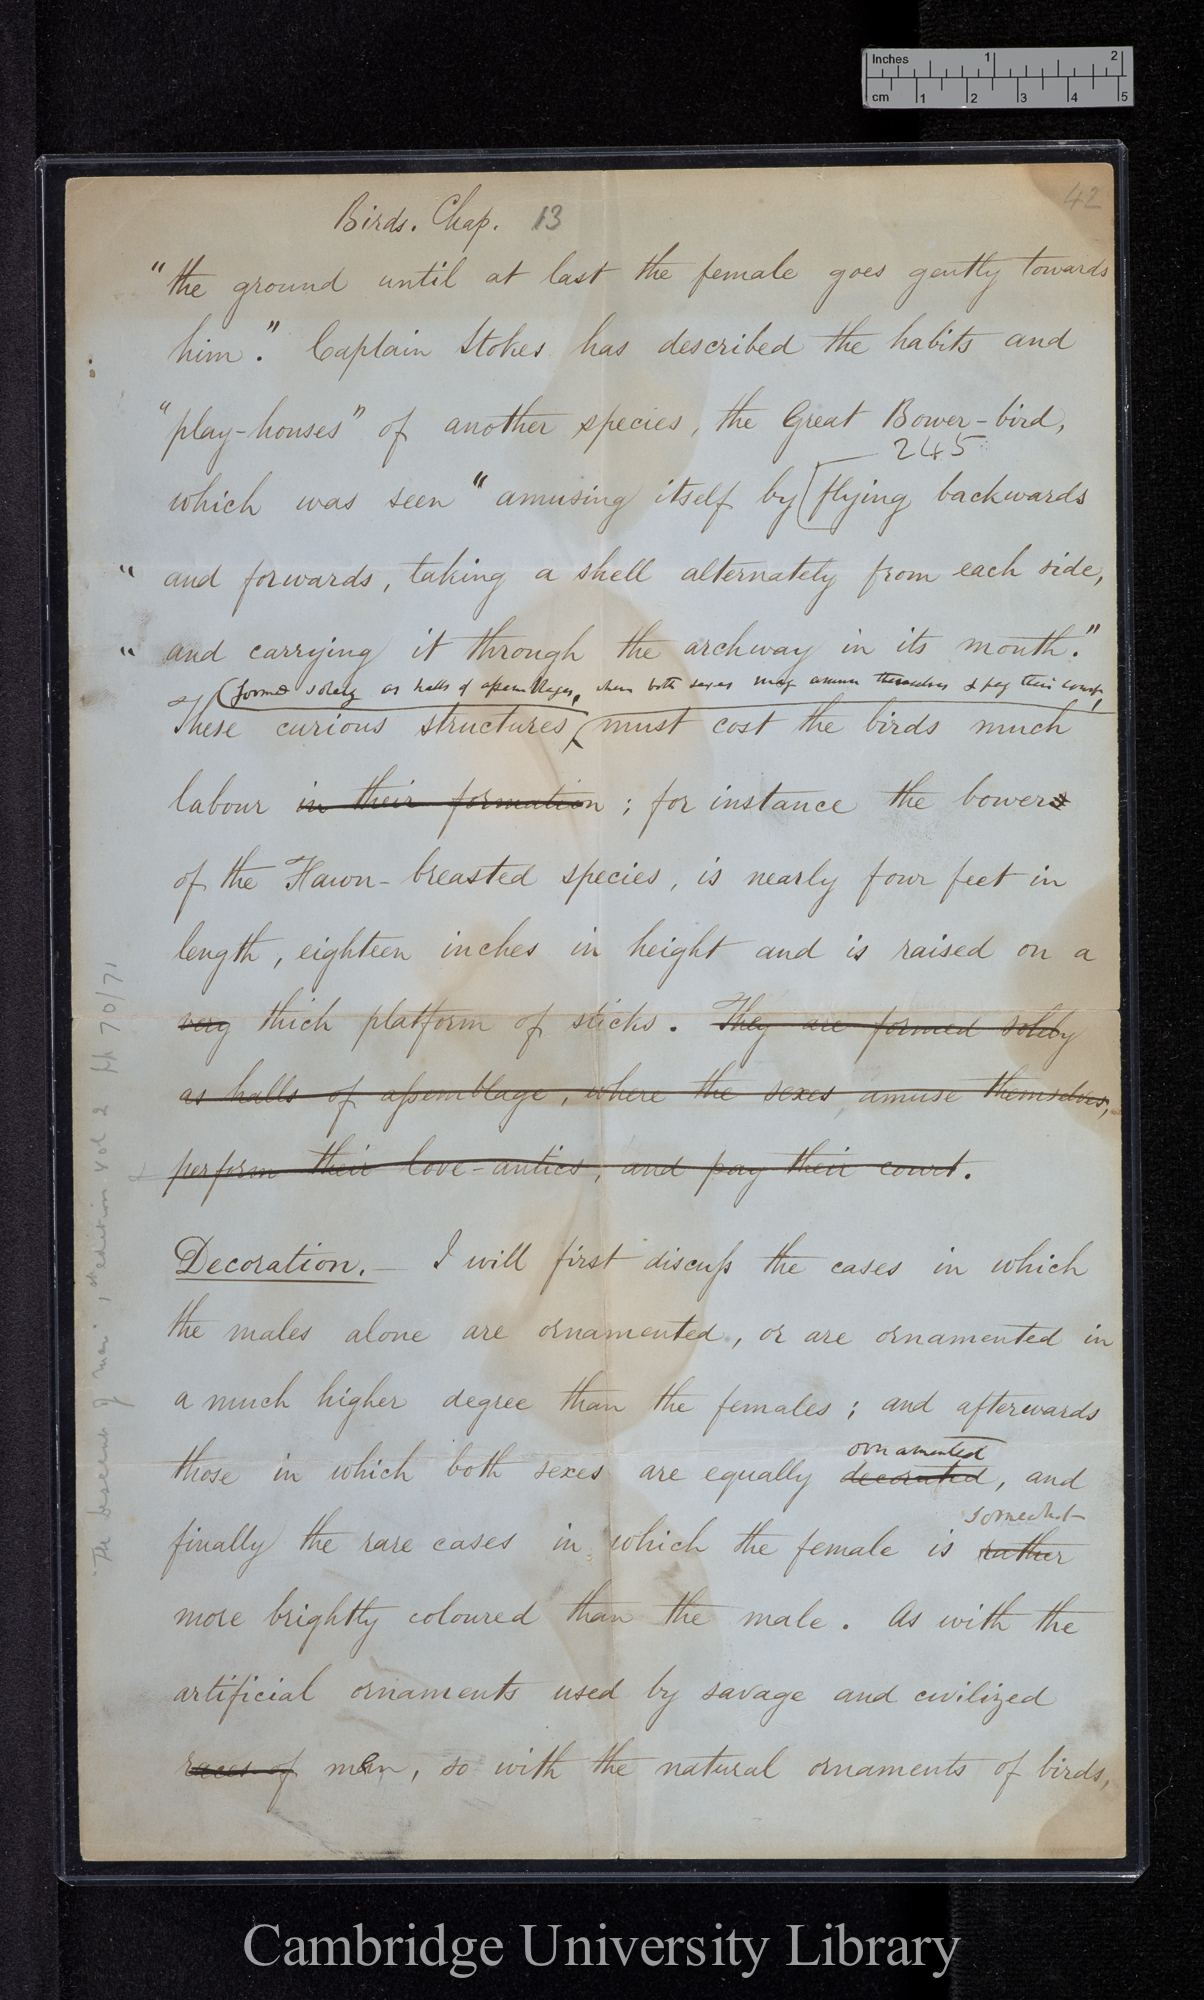 Inches 1 2
cm 1 2 3 4 5
42
Birds. Chap. 13
"the ground until at last the female goes gently towards
him." Captain Stokes has described the habits and
"play-houses" of another species, the Great Bower-bird,
245
which was seen "amusing itself by [flying backwards
" and forwards, taking a shell alternately from each side,
" and carrying it through the archway in its mouth."
(formed solely as halls of assemblages, where both sexes may amuse themselves & pay their court,
These curious structures, must cost the birds much
labour in their formation; for instance the bowers
of the Fawn-breasted species, is nearly four feet in
length, eighteen inches in height and is raised on a
very thick platform of sticks. They are formed solely
as halls of assemblage, where the sexes, amuse themselves,
perform their love-antics, and pay their court.
Decoration. — I will first discuss the cases in which
the males alone are ornamented, or are ornamented in
a much higher degree than the females; and afterwards
ornamented
those in which both sexes are equally decorated, and
somewhat
finally the rare cases in which the female is rather
more brightly coloured than the male. As with the
artificial ornaments used by savage and civilized
races of men, so with the natural ornaments of birds,
The descent of man, 1st edition vol 2 pp 70/71
Cambridge University Library